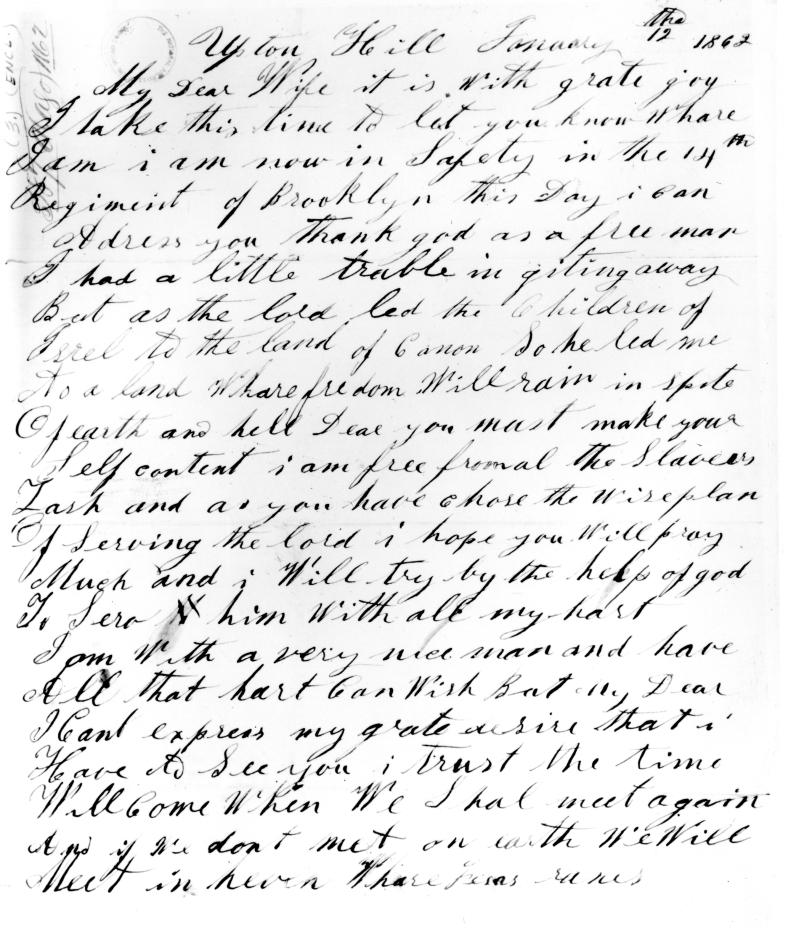 Upton Hill January the 12 1862
My Dear Wife it is With grate joy
I take this time to let you know Whare
I am i am now in Safety in the 14th
Regiment of Brooklyn this Day i can
Adress you thank god as a free man
I had a little truble in giting away
But as the lord led the Children of
Isrel to the land of Canon So he led me
To a land Whare fredom Will rain in spite
Of earth and hell Dear you must make your
Self content i am free from al the Slavers
Lash and as you have chose the Wise plan
Of Serving the lord i hope you Will pray
Much and i Will try by the help of god
To Serv him With all my hart
I am With a very nice man and have
All that hart Can Wish But My Dear
I Cant express my grate desire that i
Have to See you i trust the time
Will Come When We Shal meet again
And if We dont met on earth We Will
Meet in heven Whare Jesas ranes